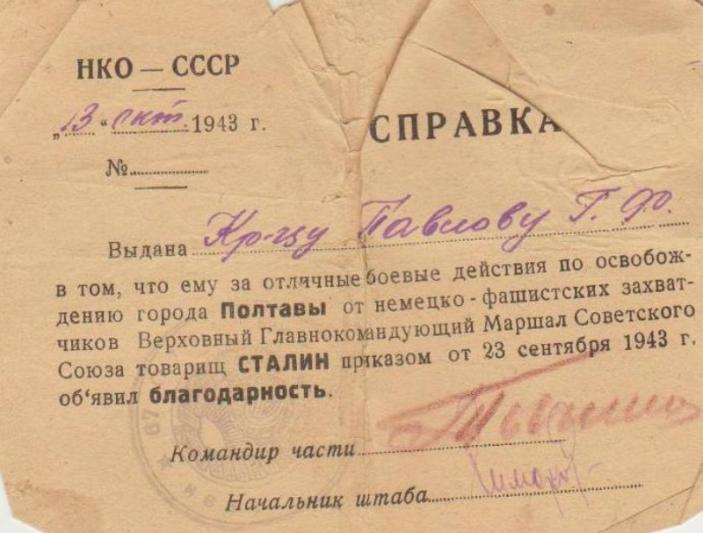 НКО — СССР
„13“ окт. 1943 г.
СПРАВКА
№
Выдана Кр-цу Павлову Г. Ф.
в том, что ему за отличные боевые действия по освобож-
дению города Полтавы от немецко-фашистских захват-
чиков Верховный Главнокомандующий Маршал Советского
Союза товарищ СТАЛИН приказом от 23 сентября 1943 г.
об‘явил благодарность.
Командир части
Начальник штаба